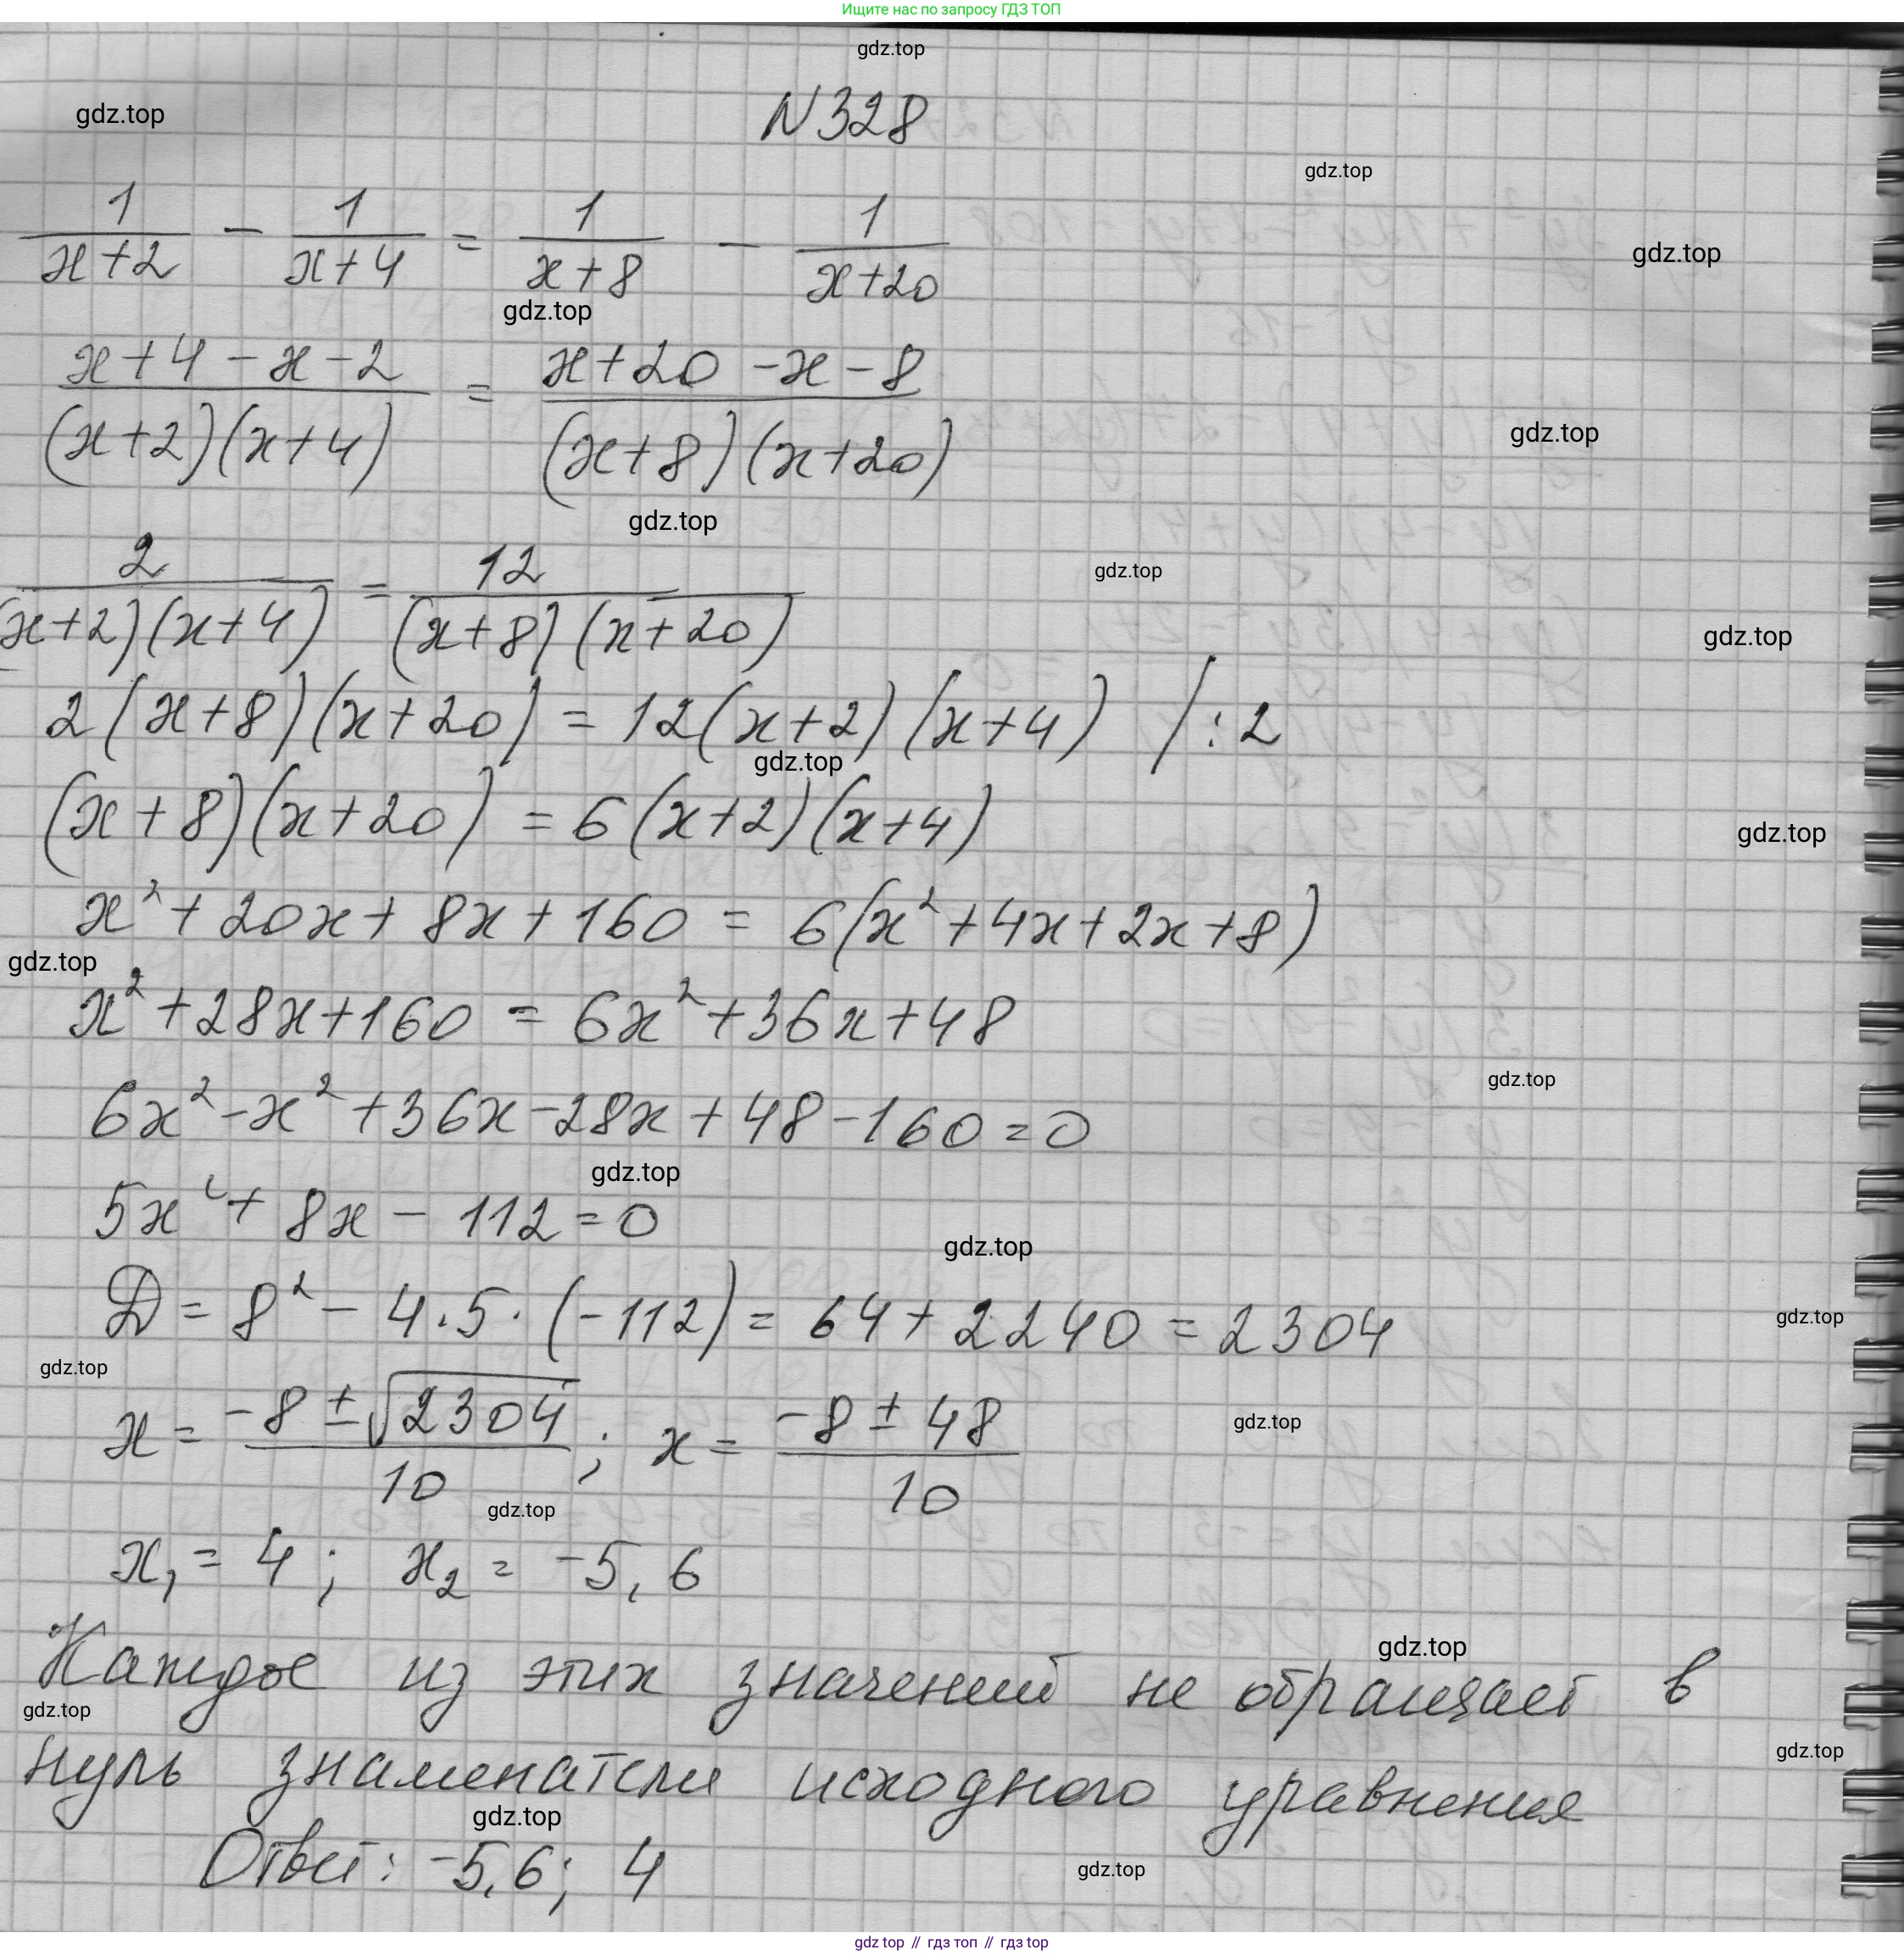 Ищите нас по запросу ГДЗ ТОП
gdz.top
gdz.top
N328
gdz.top
1/(x+2) - 1/(x+4) = 1/(x+8) - 1/(x+20)
gdz.top
gdz.top
(x+4-x-2)/((x+2)(x+4)) = (x+20-x-8)/((x+8)(x+20))
gdz.top
gdz.top
2/((x+2)(x+4)) = 12/((x+8)(x+20))
gdz.top
gdz.top
2(x+8)(x+20) = 12(x+2)(x+4) /:2
gdz.top
(x+8)(x+20) = 6(x+2)(x+4)
gdz.top
x²+20x+8x+160 = 6(x²+4x+2x+8)
gdz.top
x²+28x+160 = 6x²+36x+48
gdz.top
6x²-x²+36x-28x+48-160=0
gdz.top
5x²+8x-112=0
gdz.top
D=8²-4·5·(-112)=64+2240=2304
gdz.top
gdz.top
x=(-8±√2304)/10; x=(-8±48)/10
gdz.top
gdz.top
x₁=4; x₂=-5,6
gdz.top
Каждое из этих значений не обращает в
gdz.top
gdz.top
нуль знаменатели исходного уравнения
gdz.top
Ответ: -5,6; 4
gdz.top
gdz top // гдз топ // гдз top